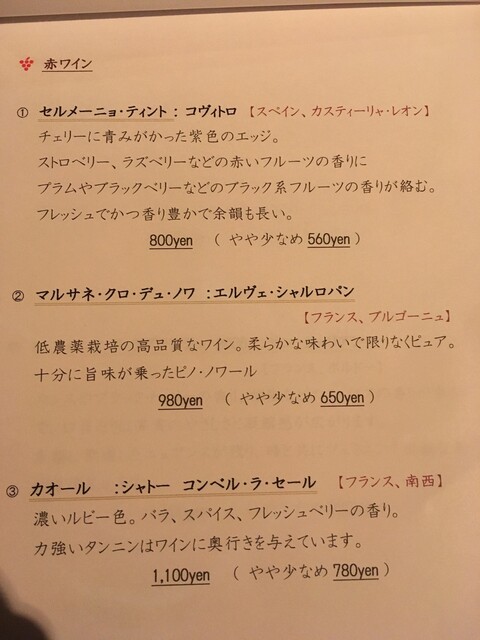 赤ワイン
① セルメーニョ・ティント : コヴィトロ 【スペイン、カスティーリャ・レオン】
チェリーに青みがかった紫色のエッジ。
ストロベリー、ラズベリーなどの赤いフルーツの香りに
プラムやブラックベリーなどのブラック系フルーツの香りが絡む。
フレッシュでかつ香り豊かで余韻も長い。
800yen ( やや少なめ 560yen )
② マルサネ・クロ・デュ・ノワ :エルヴェ・シャルロパン
【フランス、ブルゴーニュ】
低農薬栽培の高品質なワイン。柔らかな味わいで限りなくピュア。
十分に旨味が乗ったピノ・ノワール
980yen ( やや少なめ 650yen )
③ カオール :シャトー コンベル・ラ・セール 【フランス、南西】
濃いルビー色。バラ、スパイス、フレッシュベリーの香り。
力強いタンニンはワインに奥行きを与えています。
1,100yen ( やや少なめ 780yen )